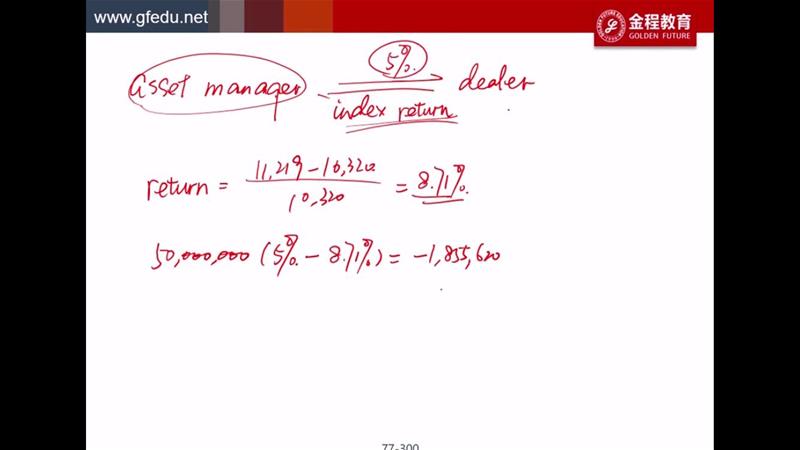 www.gfedu.net
金程教育
GOLDEN FUTURE
5%
asset manager
dealer
index return
return = 11,219-10,320 / 10,320 = 8.71%
50,000,000 (5% - 8.71%) = -1,855,620
77-300